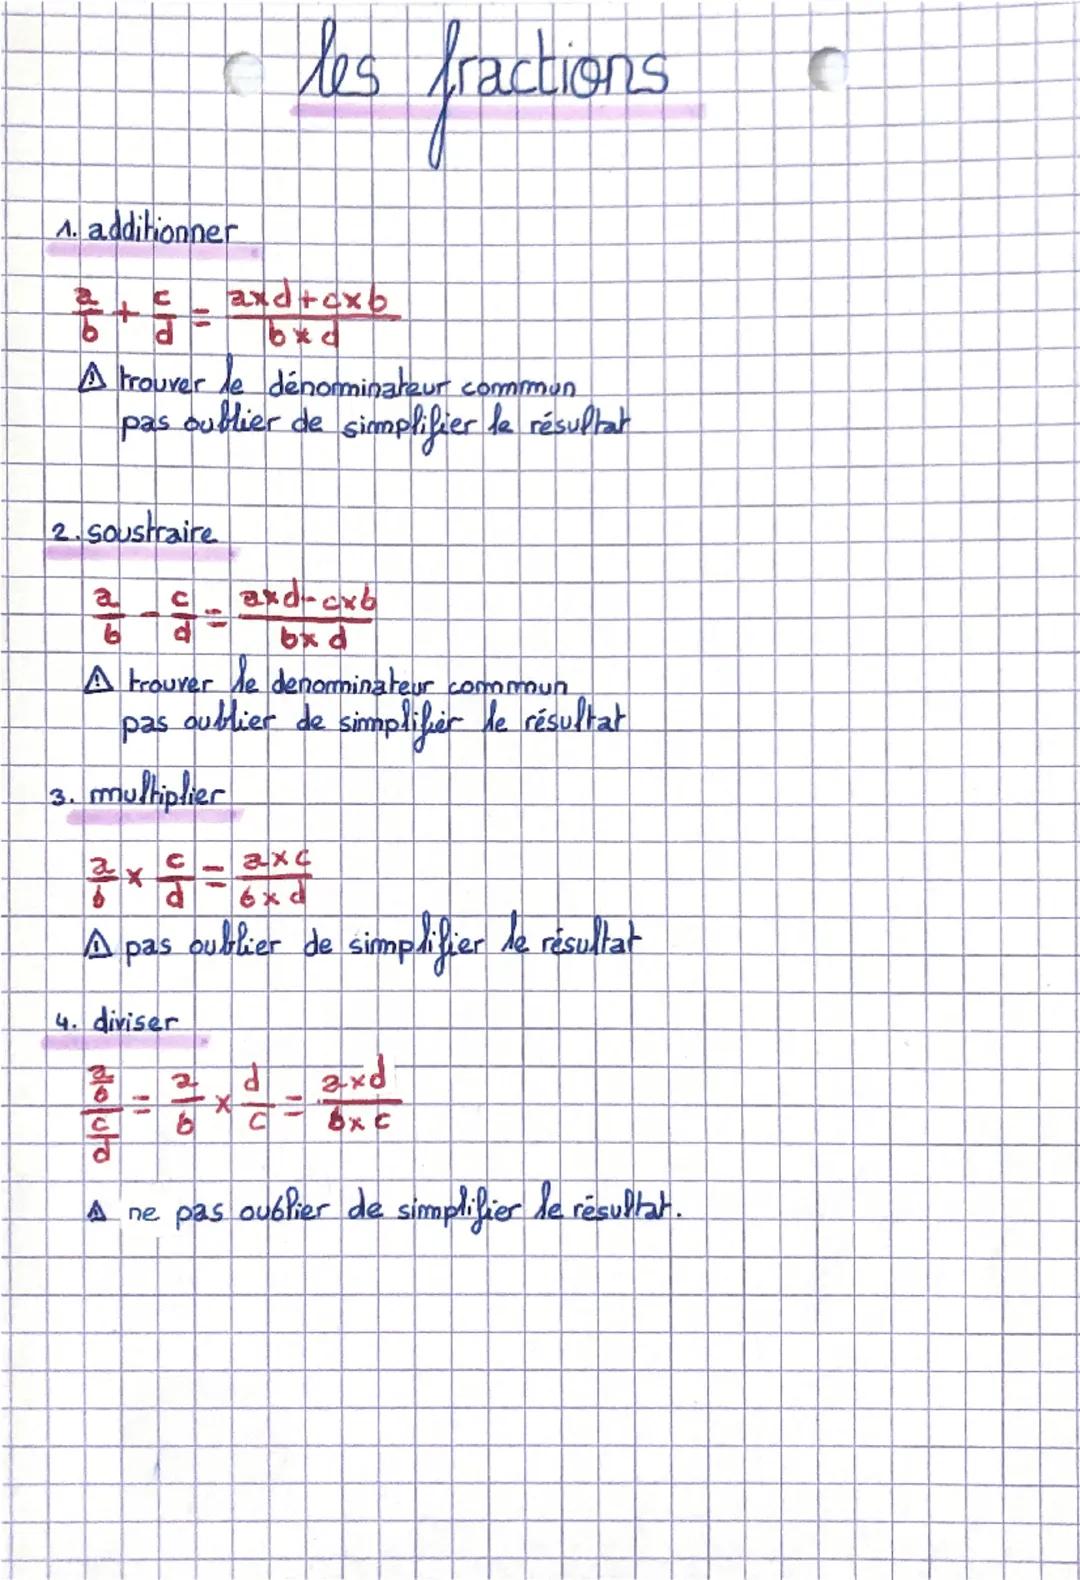 les fractions
1. additionner
a/b + c/d = axd+cxb/bxd
⚠ trouver le dénominateur commun
pas oublier de simplifier le résultat
2. soustraire
a/b - c/d = axd-cxb/bxd
⚠ trouver le denominateur commun
pas oublier de simplifier le résultat
3. multiplier
a/b x c/d = axc/bxd
⚠ pas oublier de simplifier le résultat
4. diviser
a/b/c/d = a/b x d/c = axd/bxc
⚠ ne pas oublier de simplifier le résultat.